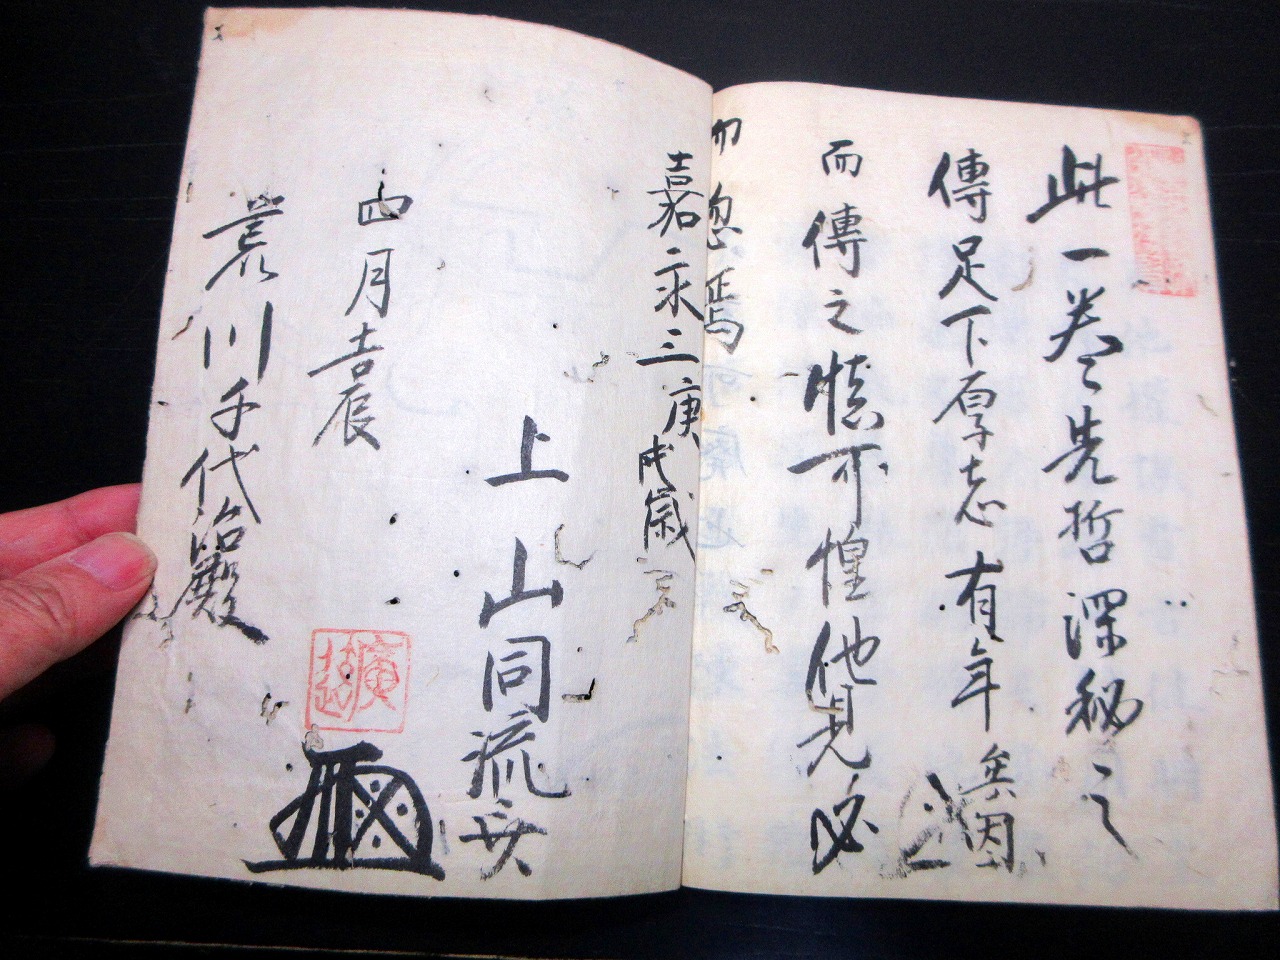 此一巻者先哲深秘之
傳足下厚志有年矣因
而傳之慎可惶他見必
而忽焉
嘉永三庚戌歳
四月吉辰
上山同流
荒川千代治殿